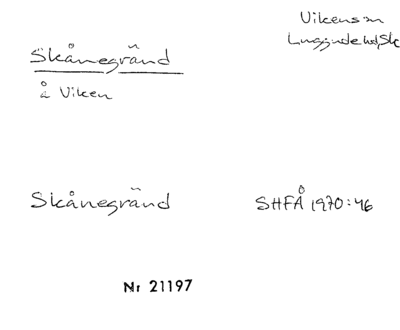 Vikens sn
Luggude hd, Sk
Skånegränd
å Viken
Skånegränd
SHFÅ 1970:46
Nr 21197